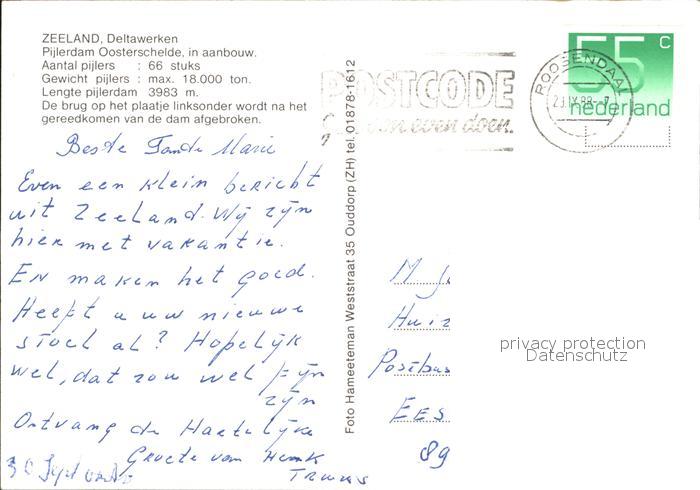 ZEELAND, Deltawerken
Pijlerdam Oosterschelde, in aanbouw.
Aantal pijlers : 66 stuks
Gewicht pijlers : max. 18.000 ton.
Lengte pijlerdam 3983 m.
De brug op het plaatje linksonder wordt na het
gereedkomen van de dam afgebroken.
Beste Tante Marie
Even een klein bericht
uit Zeeland. Wij zijn
hier met vakantie.
En maken het goed.
Heeft u uw nieuwe
stoel al? Hopelijk
wel, dat zou wel fijn
zijn
Ontvang de Hartelijke
Groete van Henk
Truus
30 Sept
Foto Hameeteman Weststraat 35 Ouddorp (ZH) tel. 01878-1612
POSTCODE
even doen.
ROOSENDAAL
55 c
nederland
M
Huiz
Postbus
EES
89
privacy protection
Datenschutz